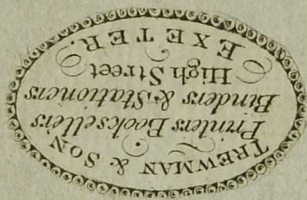 TREWMAN & SON
Printers Booksellers
Binders & Stationers
High Street
EXETER.